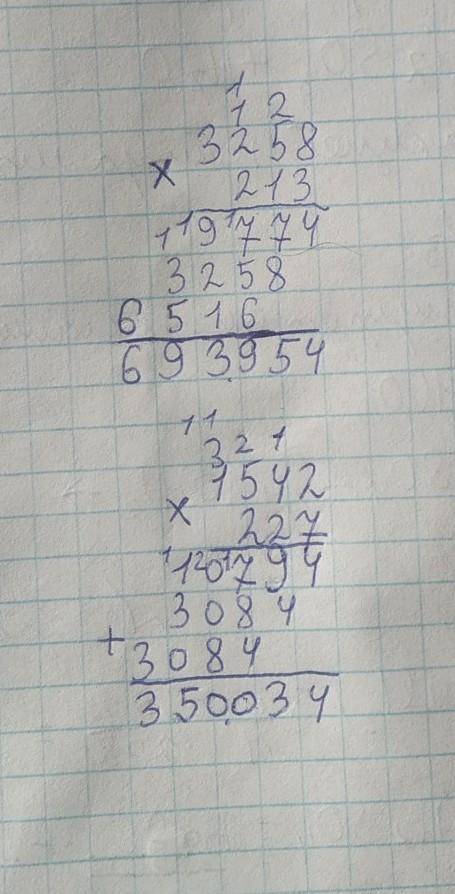 1
1 2
3258
× 213
1 1 9 1 774
3258
6516
693.954
1 1
3 2 1
1542
× 227
1 1 2 0 1 794
3084
+ 3084
350.034